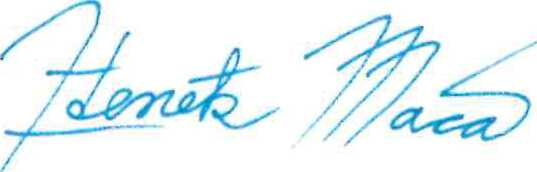 Zdenek Maca